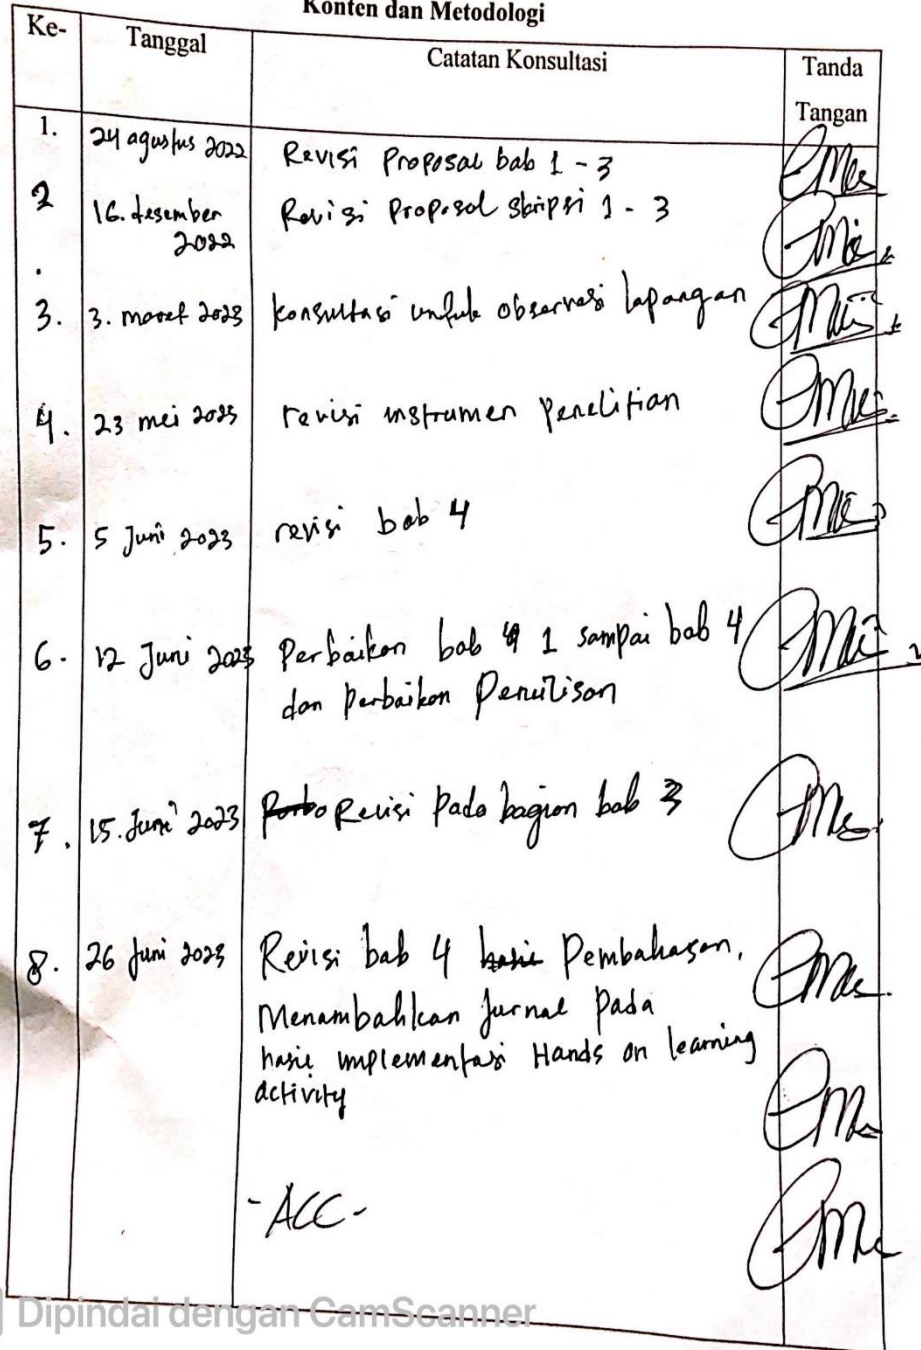 Konten dan Metodologi
Ke- Tanggal Catatan Konsultasi Tanda Tangan
1. 24 agustus 2022 Revisi Proposal bab 1 - 3
2. 16. desember 2022 Revisi Proposal skripsi 1 - 3
3. 3. maret 2023 konsultasi untuk observasi lapangan
4. 23 mei 2023 revisi instrumen penelitian
5. 5 Juni 2023 revisi bab 4
6. 12 Juni 2023 Perbaikan bab 1 sampai bab 4
dan perbaikan Penulisan
7. 15. Juni 2023 Revisi Pada bagian bab 3
8. 26 Juni 2023 Revisi bab 4 hasil Pembahasan,
Menambahkan Jurnal Pada
hasil implementasi Hands on learning
activity
- ACC -
Dipindai dengan CamScanner